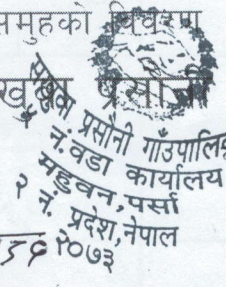 समुहको विवरण
सखुवा प्रसौनी
सखुवा प्रसौनी गाँउपालिका
नं. वडा कार्यालय
महुवन, पर्सा
२ नं. प्रदेश, नेपाल
२०७३